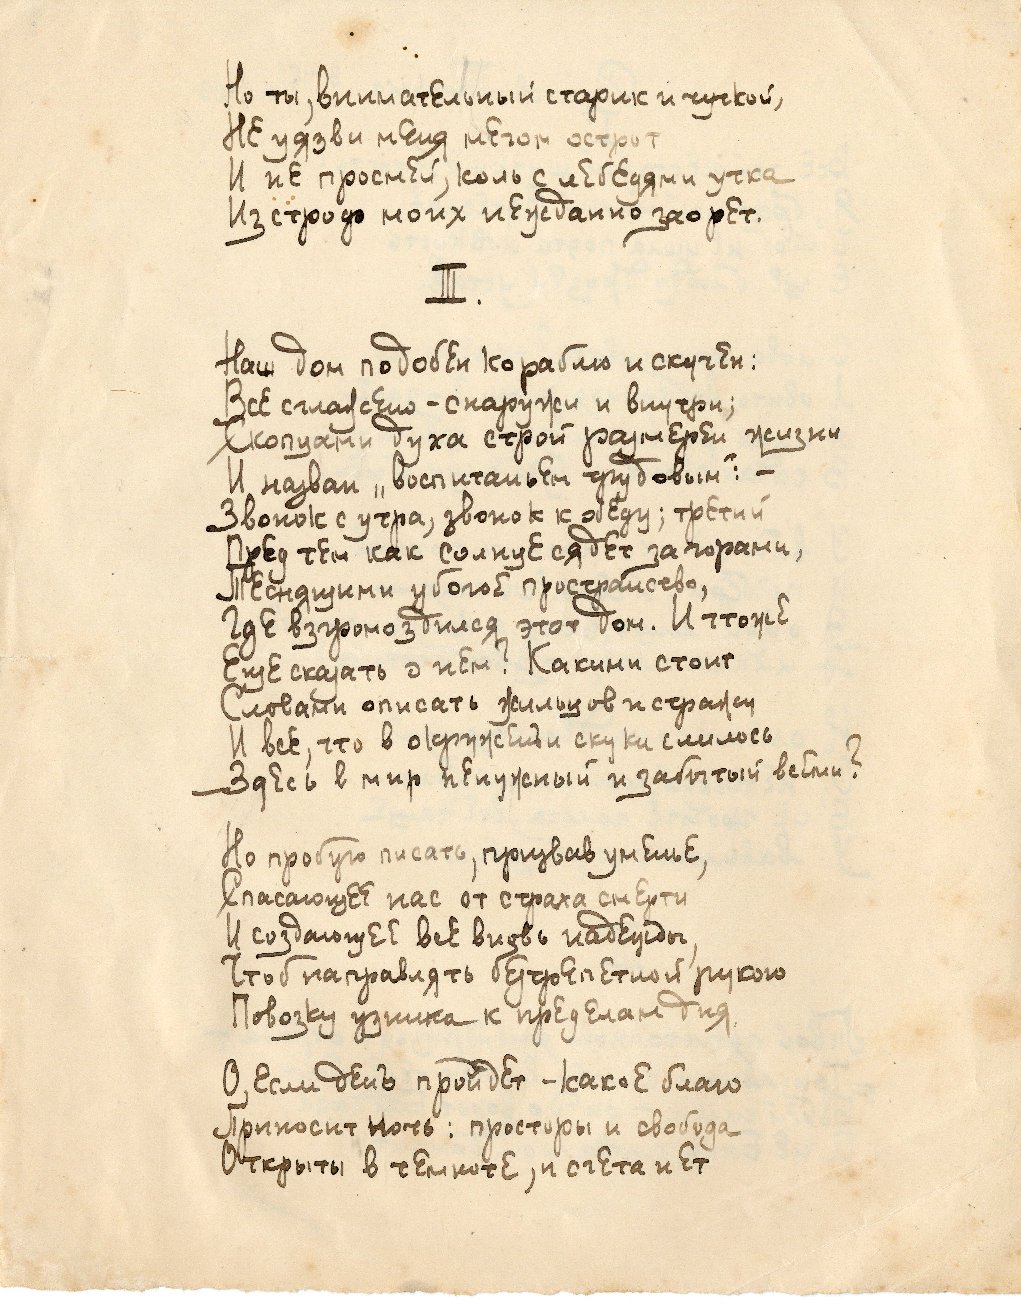 Но ты, внимательный старик и чуткой,
Не уязви меня мечом острот
И не просмей, коль с лебедями утка
Из строф моих нежданно заорет.
III.
Наш дом подобен кораблю и скучен:
Все сглажено – снаружи и внутри;
Скопцами духа строй размерен жизни
И назван „воспитаньем трудовым": –
Звонок с утра, звонок к обеду; третий
Пред тем как солнце сядет за горами,
Теснящими убогое пространство,
Где взгромоздился этот дом. И что же
Еще сказать о нем? Какими стоит
Словами описать жильцов и стражу
И все, что в окружении скуки слилось
Здесь в мир ненужный и забытый всеми?
Но пробую писать, призвав уменье,
Спасающее нас от страха смерти
И создающее все вновь надежды,
Чтоб направлять безтрепетной рукою
Повозку узника к пределам дня.
О, если день пройдет – какое благо
Приносит ночь: просторы и свобода
Открыты в темноте, и счета нет